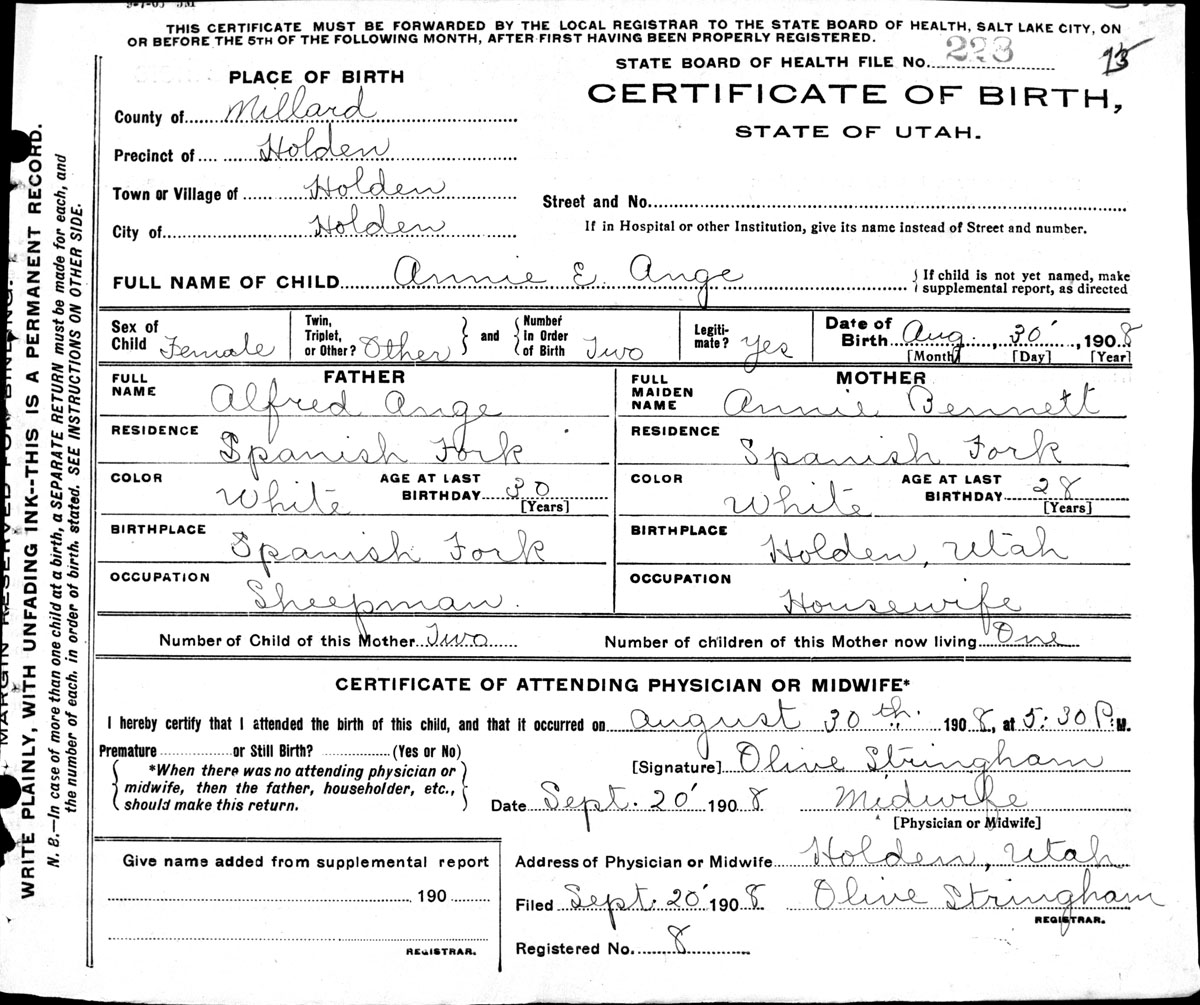 9-7-05 5M
THIS CERTIFICATE MUST BE FORWARDED BY THE LOCAL REGISTRAR TO THE STATE BOARD OF HEALTH, SALT LAKE CITY, ON
OR BEFORE THE 5TH OF THE FOLLOWING MONTH, AFTER FIRST HAVING BEEN PROPERLY REGISTERED.
STATE BOARD OF HEALTH FILE No. 223
CERTIFICATE OF BIRTH,
STATE OF UTAH.
PLACE OF BIRTH
County of Millard
Precinct of Holden
Town or Village of Holden
City of Holden
Street and No.
If in Hospital or other Institution, give its name instead of Street and number.
FULL NAME OF CHILD Annie E. Ange
If child is not yet named, make
supplemental report, as directed
Sex of Child Female
Twin, Triplet, or Other? Other and Number in Order of Birth Two
Legitimate? Yes
Date of Birth Aug. 30, 1908
[Month] [Day] [Year]
FATHER
FULL NAME Alfred Ange
RESIDENCE Spanish Fork
COLOR White AGE AT LAST BIRTHDAY 30 [Years]
BIRTHPLACE Spanish Fork
OCCUPATION Sheepman.
MOTHER
FULL MAIDEN NAME Annie Bennett
RESIDENCE Spanish Fork
COLOR White AGE AT LAST BIRTHDAY 28 [Years]
BIRTHPLACE Holden, Utah
OCCUPATION Housewife
Number of Child of this Mother Two Number of children of this Mother now living One
CERTIFICATE OF ATTENDING PHYSICIAN OR MIDWIFE*
I hereby certify that I attended the birth of this child, and that it occurred on August 30th. 1908, at 5:30 P.M.
Premature or Still Birth? (Yes or No)
*When there was no attending physician or
midwife, then the father, householder, etc.,
should make this return.
[Signature] Olive Stringham
Date Sept. 20 1908 Midwife
[Physician or Midwife]
Give name added from supplemental report
190
REGISTRAR.
Address of Physician or Midwife Holden, Utah
Filed Sept. 20 1908 Olive Stringham
REGISTRAR.
Registered No. 8
MARGIN RESERVED FOR BINDING.
WRITE PLAINLY, WITH UNFADING INK--THIS IS A PERMANENT RECORD.
N. B.—In case of more than one child at a birth, a SEPARATE RETURN must be made for each, and
the number of each, in order of birth, stated. SEE INSTRUCTIONS ON OTHER SIDE.